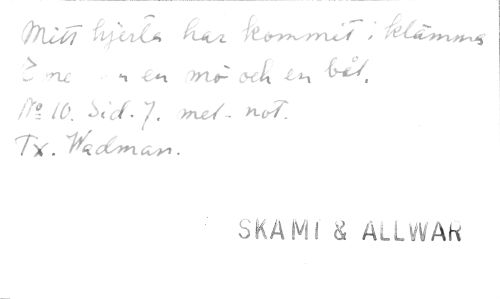 Mitt hjerta har kommit i klämma
en mö och en båt.
No 10. Sid. 7. mel. not.
Tx. Wadman.
SKAMT & ALLWAR